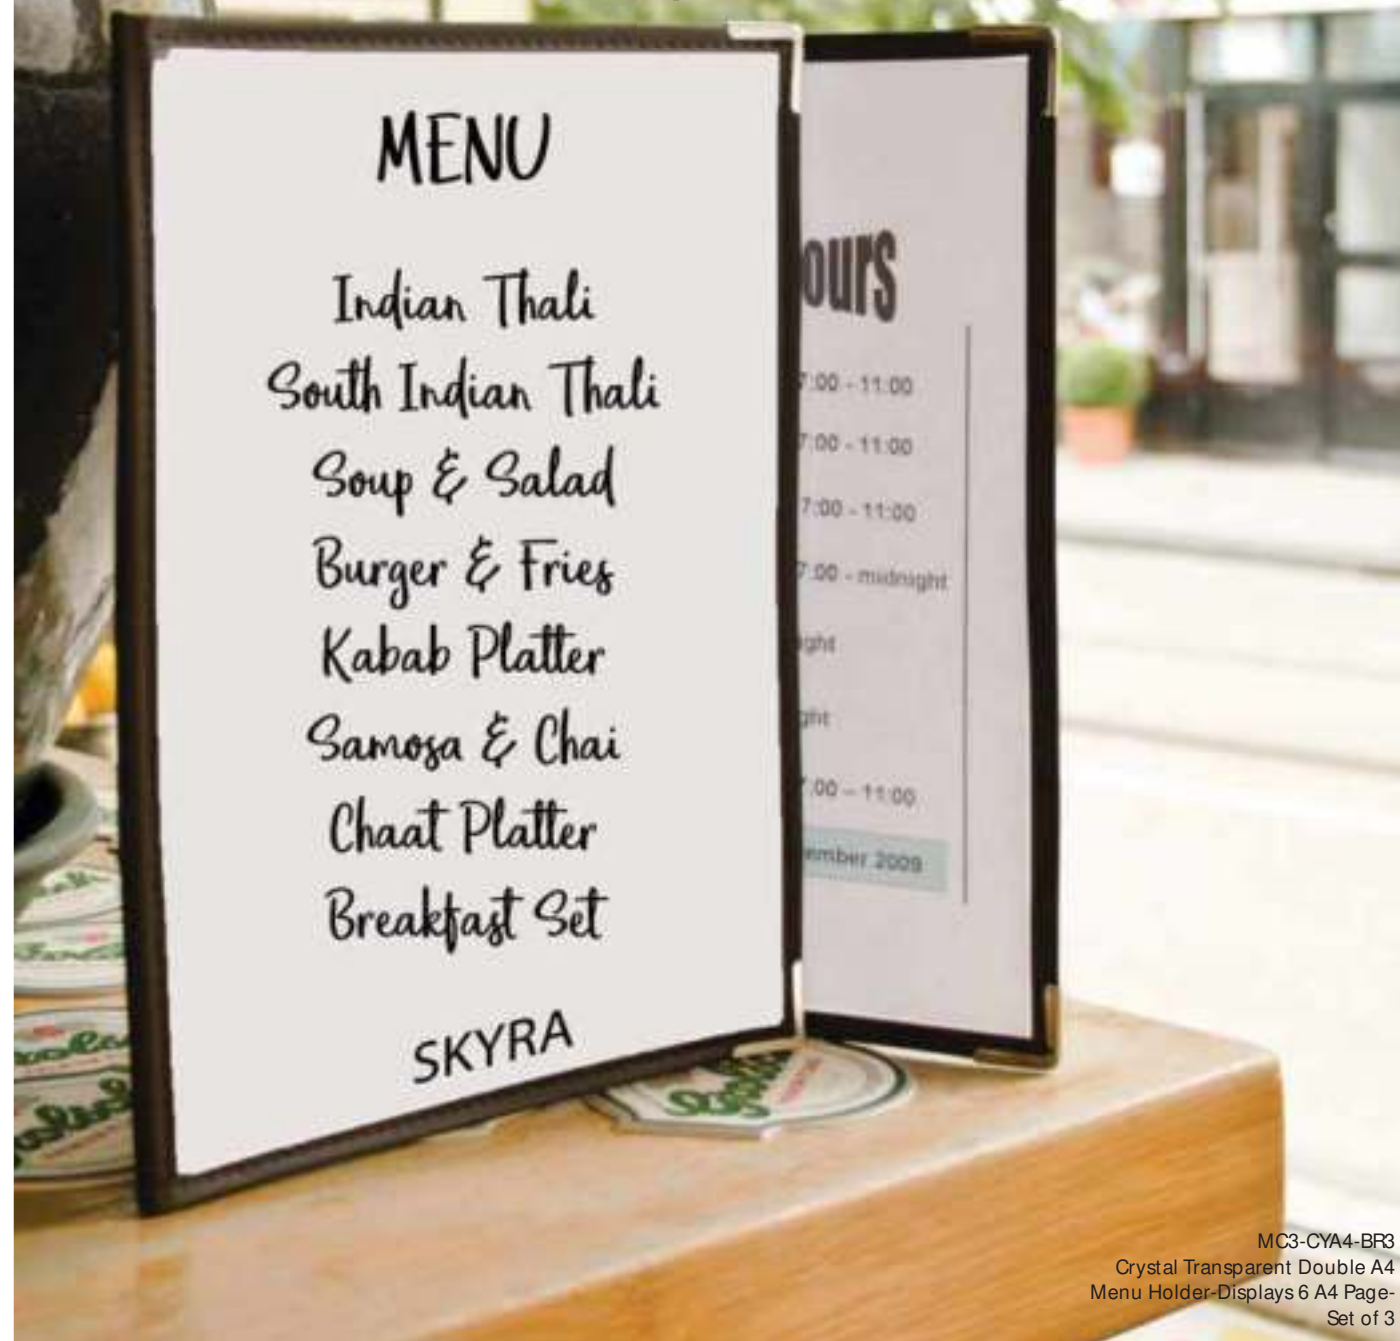 MENU
Indian Thali
South Indian Thali
Soup & Salad
Burger & Fries
Kabab Platter
Samosa & Chai
Chaat Platter
Breakfast Set
SKYRA
ours
7:00 - 11:00
7:00 - 11:00
7:00 - 11:00
7:00 - midnight
ght
ght
:00 – 11:00
ember 2009
MC3-CYA4-BR3
Crystal Transparent Double A4
Menu Holder-Displays 6 A4 Page-
Set of 3